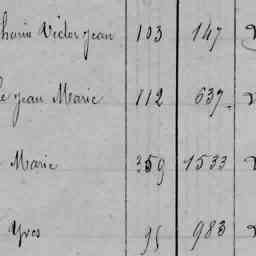 Victor Jean 103 147
Jean Marie 112 637
Marie 359 1533
Yves 95 983